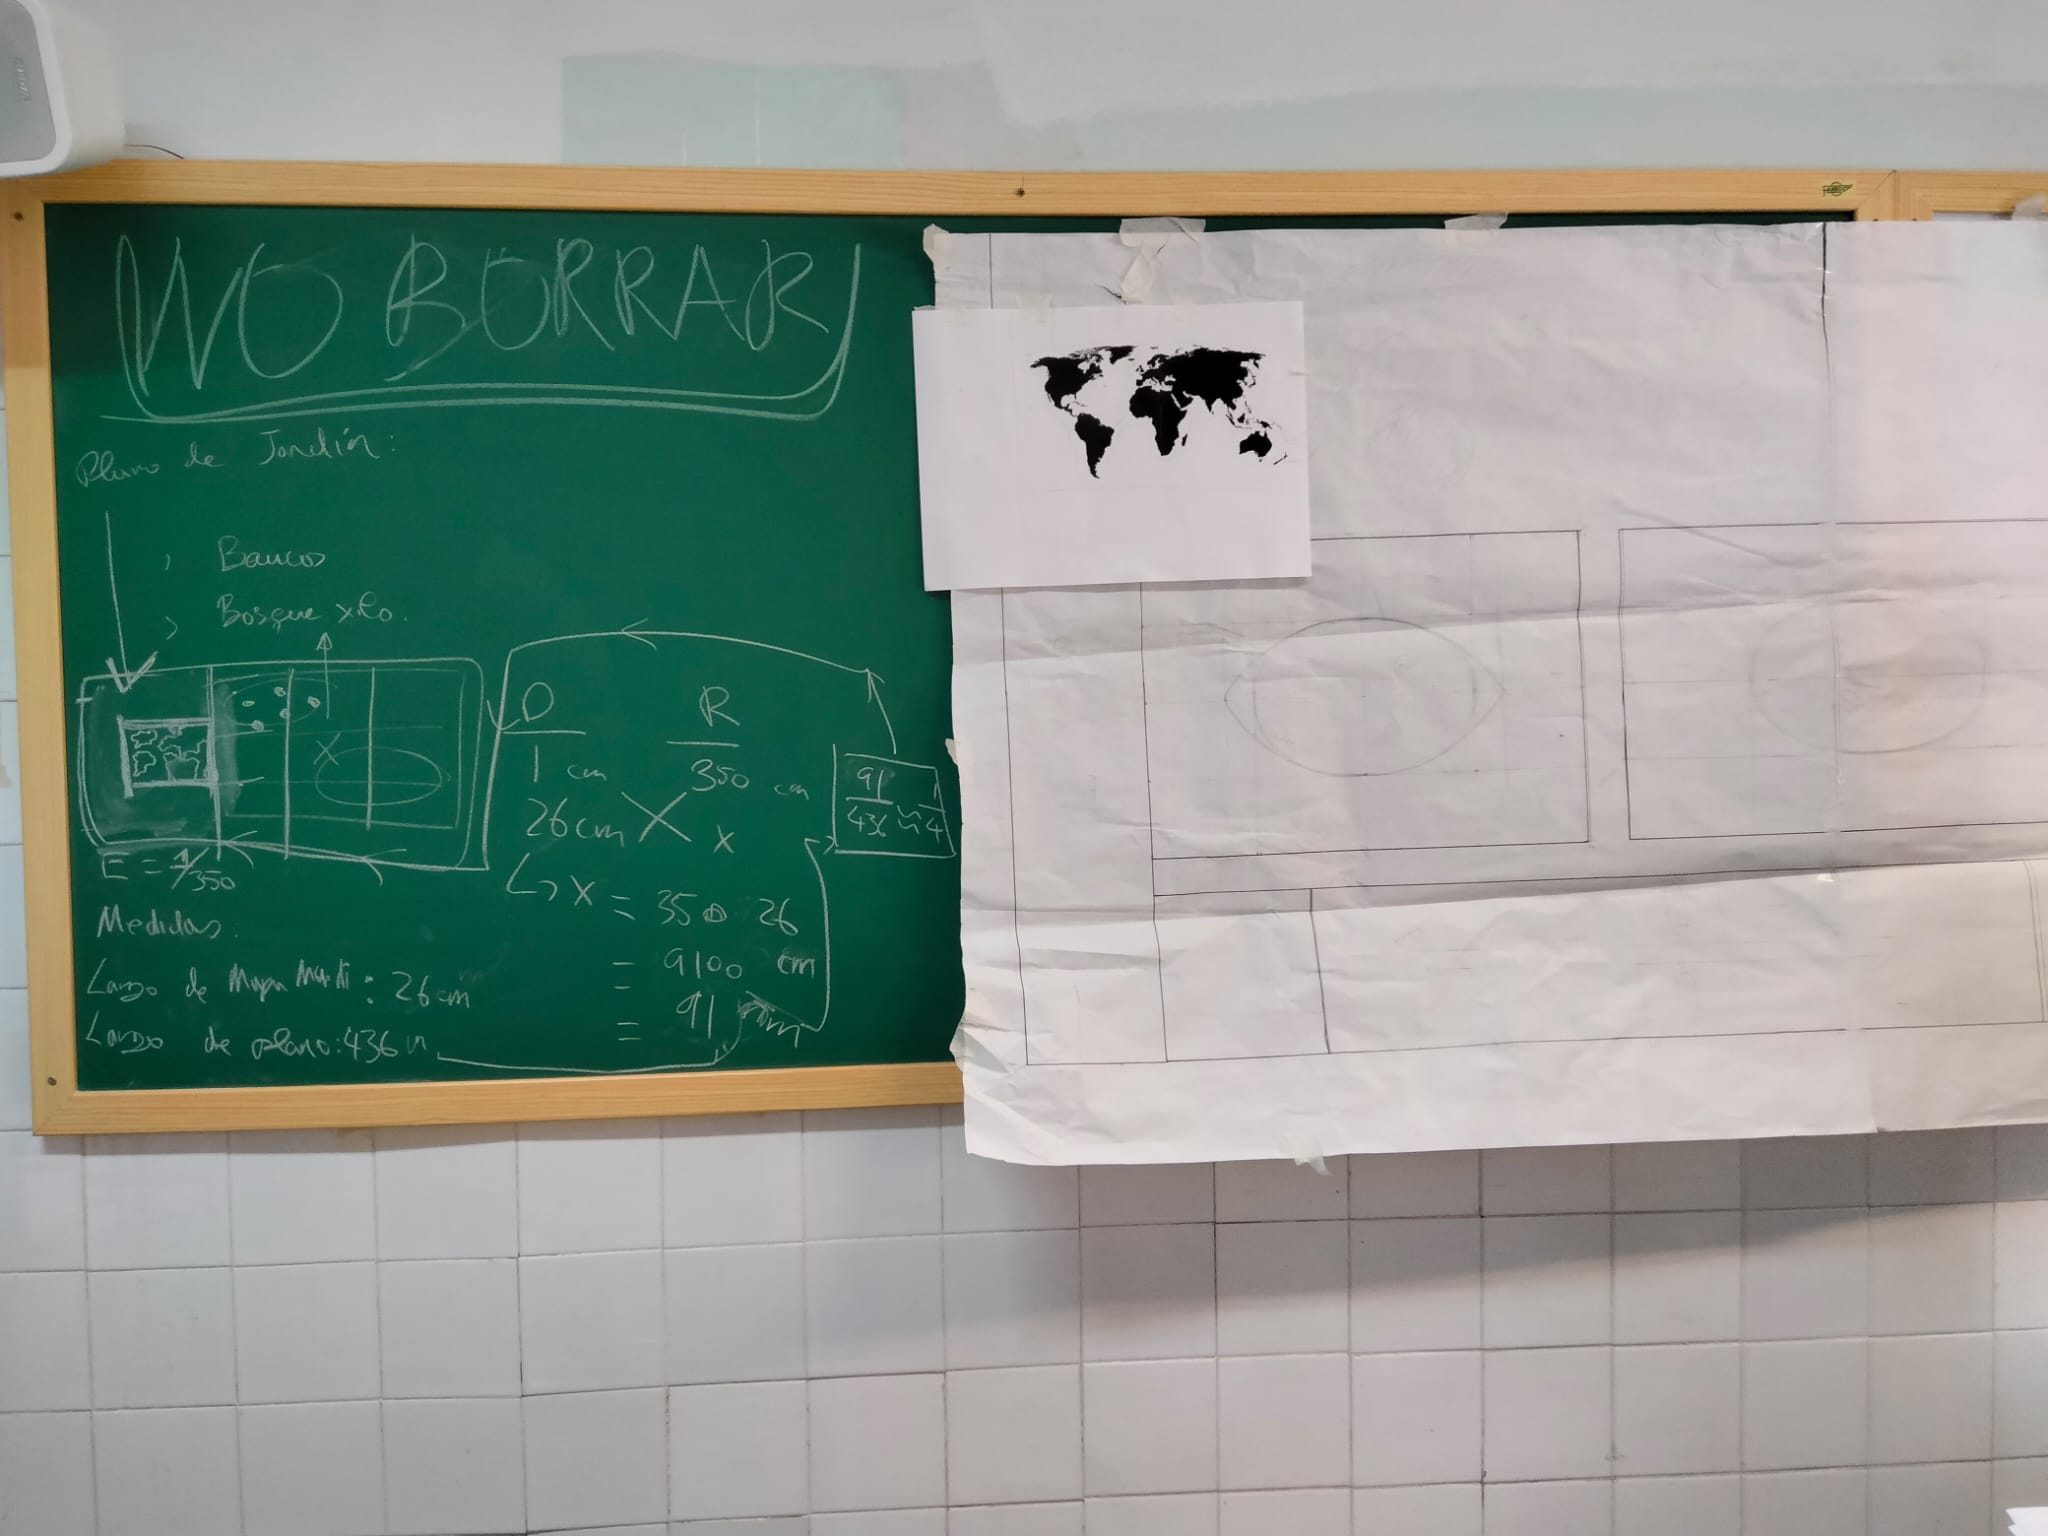 NO BORRAR
Plano de Jardín:
> Bancos
> Bosque xilo.
X
E = 1/350
Medidas.
Largo de Mapa Mundi: 26 cm
Largo de plano: 436 m
D R
1 cm 350 cm
26 cm x
↳ x = 350 26
= 9100 cm
= 91 m
91/436 ≈ 1/4